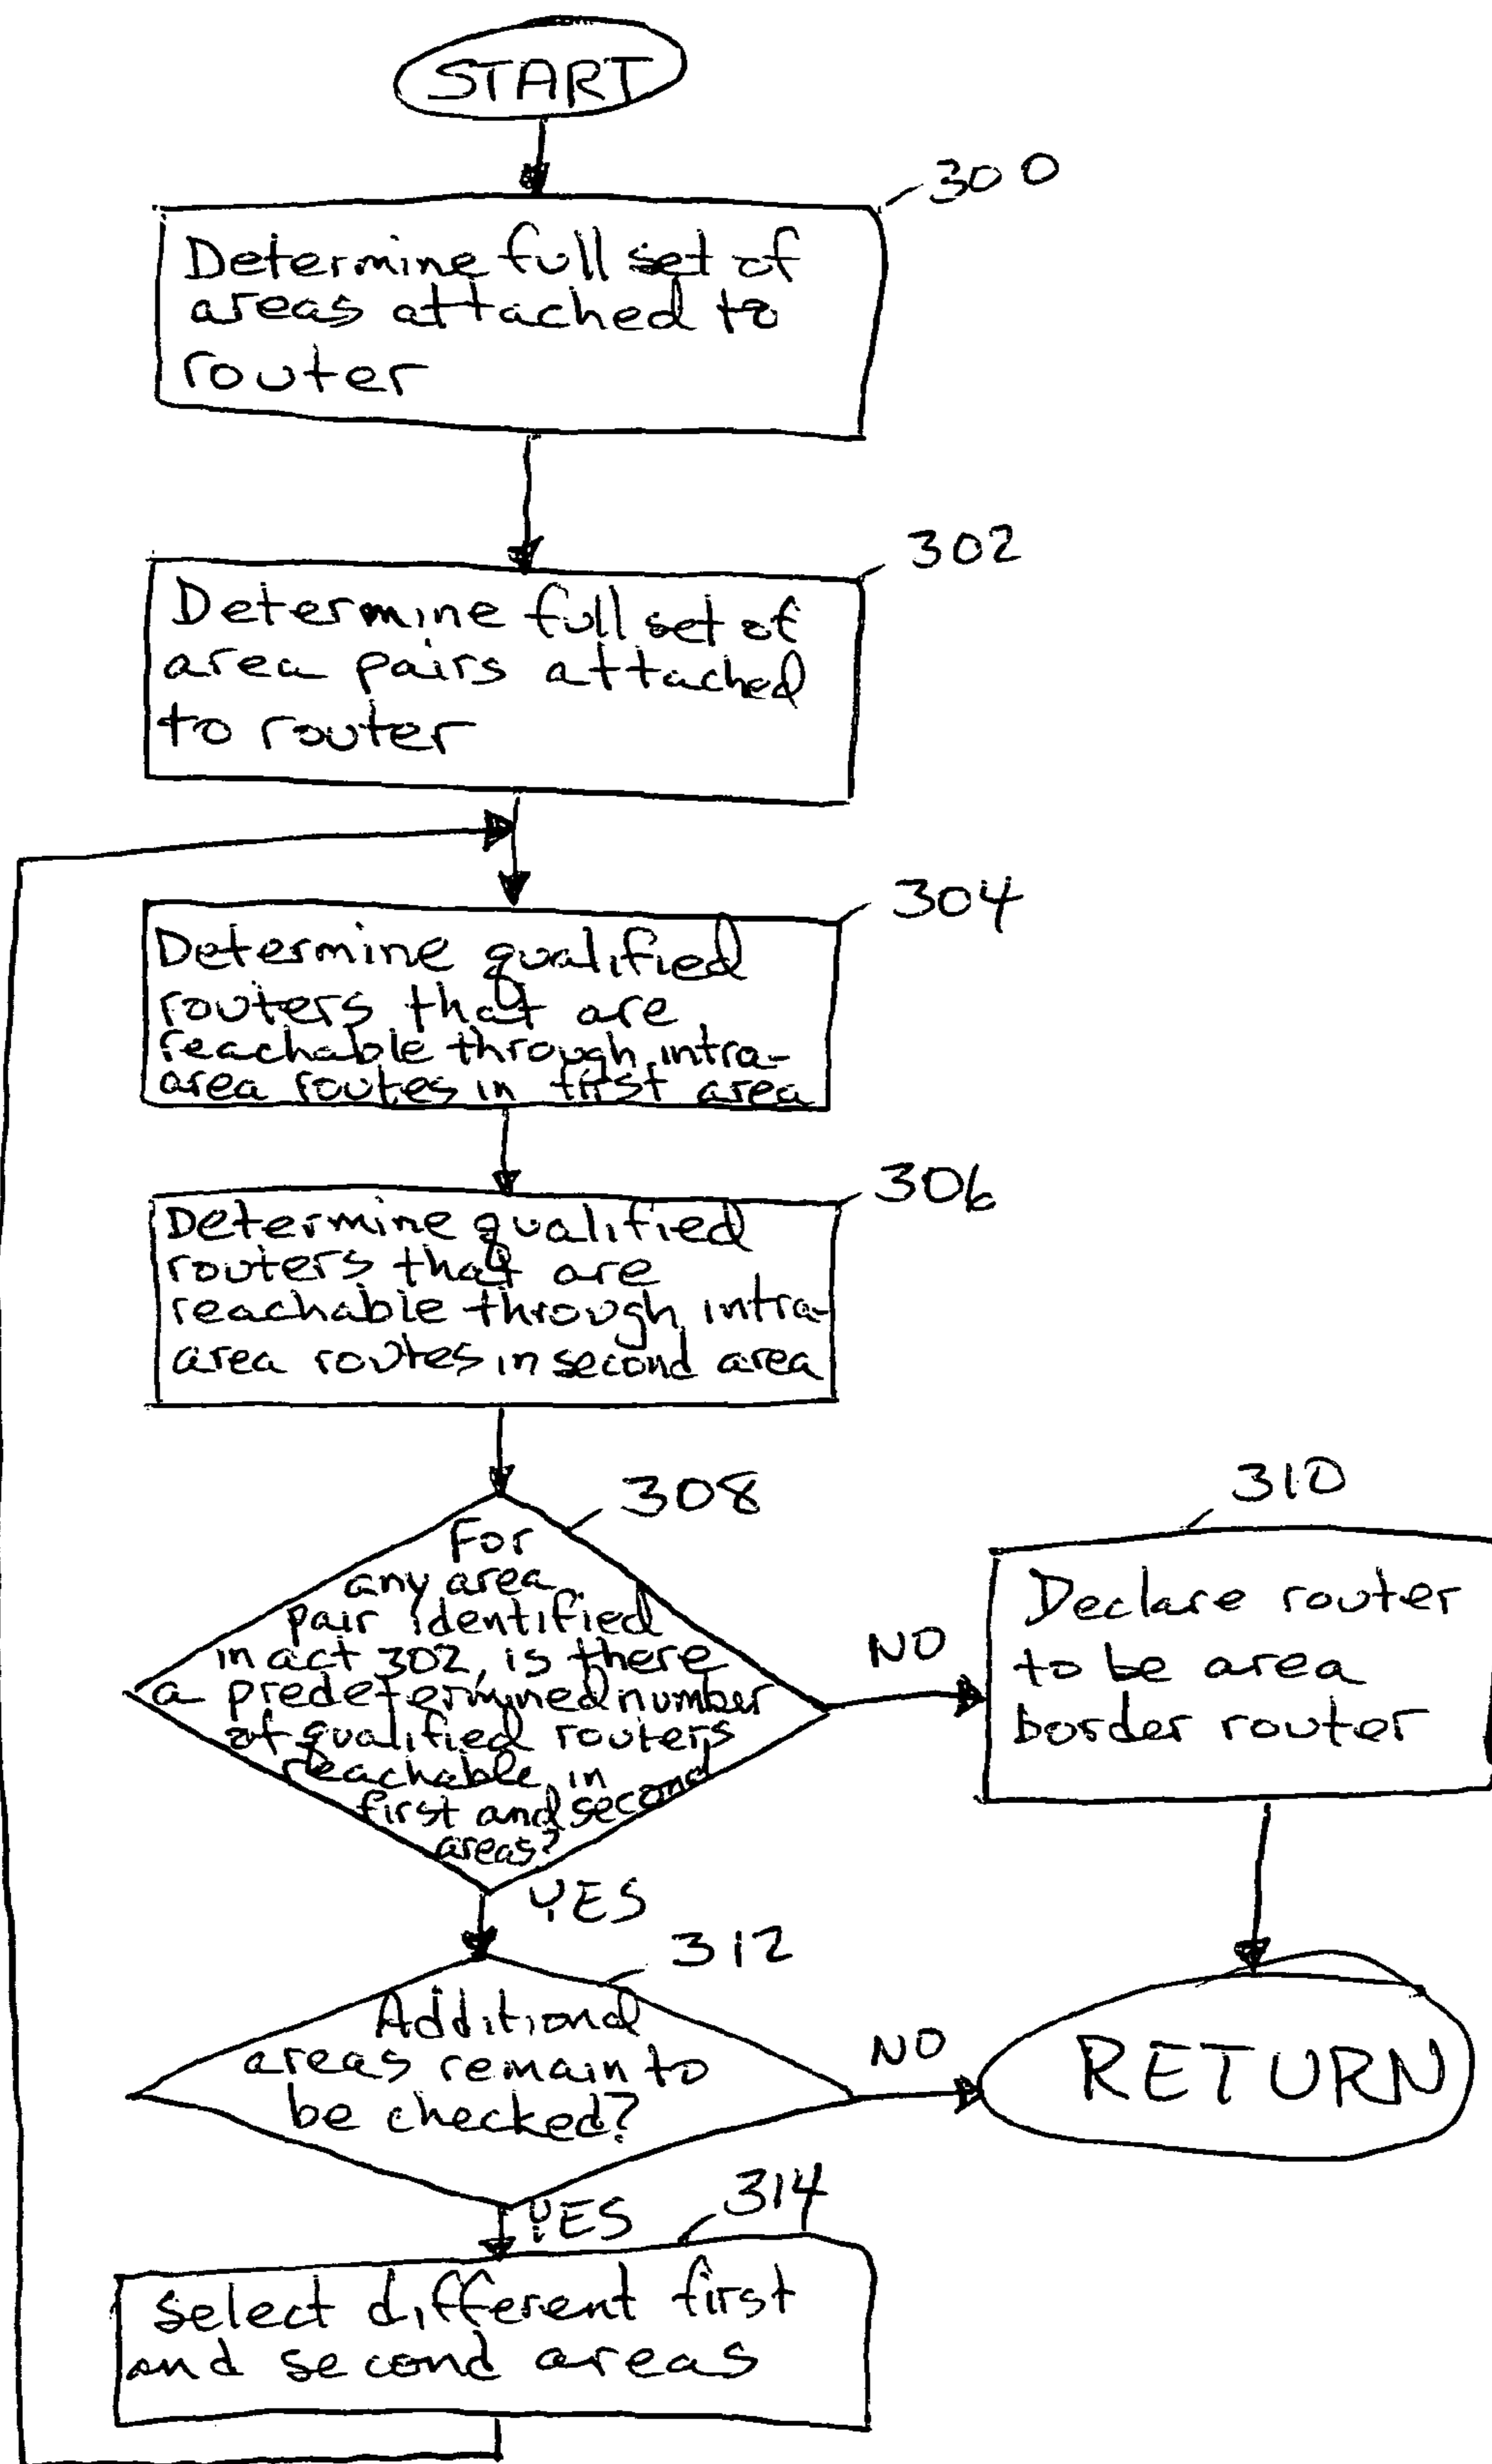 START
300
Determine full set of
areas attached to
router
302
Determine full set of
area pairs attached
to router
304
Determine qualified
routers that are
reachable through intra-
area routes in first area
306
Determine qualified
routers that are
reachable through intra-
area routes in second area
308
For
any area
pair identified
in act 302, is there
a predetermined number
of qualified routers
reachable in
first and second
areas?
NO
310
Declare router
to be area
border router
YES
312
Additional
areas remain to
be checked?
NO
RETURN
YES
314
Select different first
and second areas